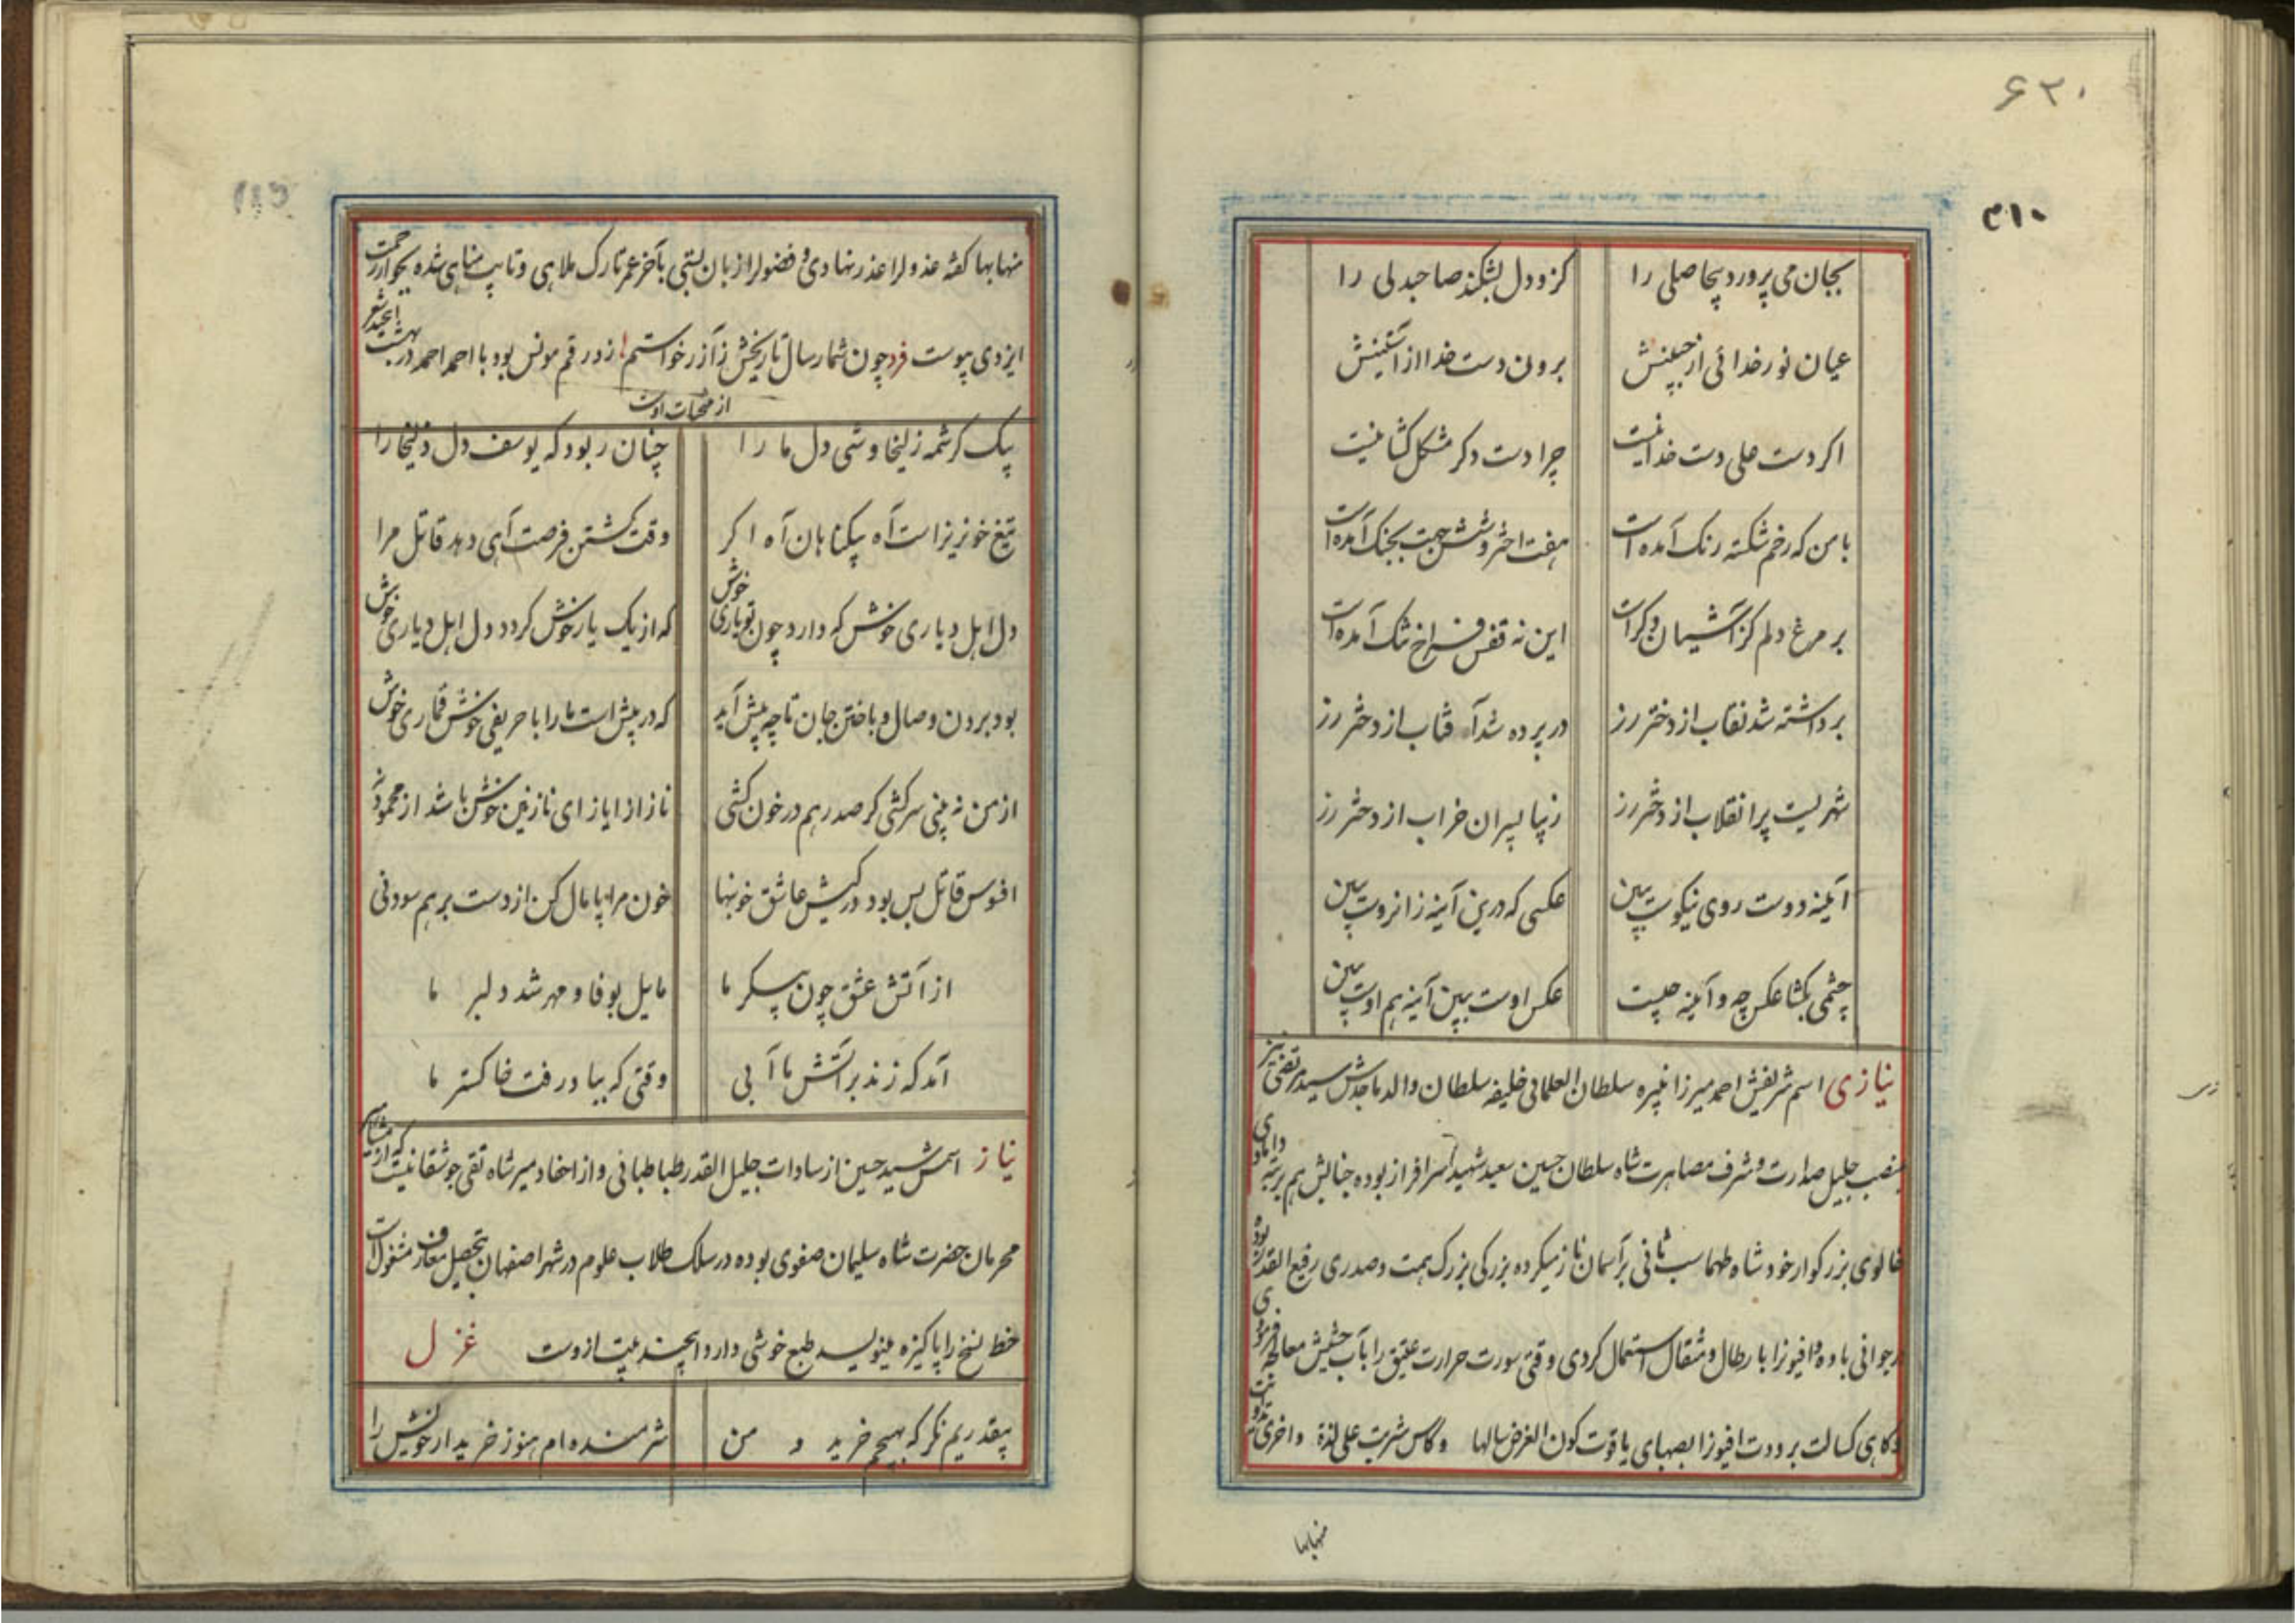 ۶۳۰
۳۱۰
بجان می پرورد بیحاصلی را کزو دل بشکند صاحبدلی را
عیان نور خدائی از جبینش برون دست خدا از آستینش
اکر دست علی دست خدا نیست چرا دست دکر مشکل کشا نیست
با من که رخم شکسته رنک آمده است هفت اختر و شش جهت بجنک آمده است
بر مرغ دلم کز آشیان دکر است این نه قفس فراخ تنک آمده است
برداشته شد نقاب از دختر رز در پرده شد آفتاب از دختر رز
شهریست پر انقلاب از دختر رز زیبا پسران خراب از دختر رز
آئینه دوست روی نیکوست ببین عکسی که درین آینه زانروست ببین
چشمی بکشا عکس چه و آئینه چیست عکس اوست ببین آینه هم اوست ببین
نیازی اسم شریفش احمد میرزا نبیره سلطان العلمائی خلیفه سلطان والد ماجدش سید مرتضی نیز
بمنصب جلیل صدارت و شرف مصاهرت شاه سلطان حسین سعید شهید سرافراز بوده جنابش هم برتبه دامادی
خالوی بزرکوار خود شاه طهماسب ثانی بر آسمان ناز میکرده بزرکی بزرک همت و صدری رفیع القدر بوده
در جوانی باده و افیونرا با رطال و مثقال استعمال کردی وقتی سورت حرارت عتیق را بآب حشیش معالجه فرمودی
و کاهی کسالت برودت افیونرا بصهبای یاقوت کون الغرض سالها و کاس شربت علی لذة و اخری تداویت
منهابها
منهابها کفته عذولرا عذر نهادی و فضولرا زبان بستی بآخر عمر تارک ملاهی و تایب مناهی شده بجوار رحمت
ایزدی پیوست فرد چون شمار سال تاریخش ز آزر خواستم زد رقم مونس بود با احمد احمد در بهشت
از منتخبات اوست
بیک کرشمه زلیخا وشی دل ما را چنان ربود که یوسف دل زلیخا را
تیغ خونریز است آه بیکناهان آه اکر وقت کشتن فرصت آهی دهد قاتل مرا
دل اهل دیاری خوش که دارد چون تو یاری خوش که از یک یار خوش کردد دل اهل دیاری خوش
بود بردن وصال و باختن جان تا چه پیش آید که در پیش است ما را با حریفی خوش قماری خوش
از من نه بینی سرکشی کر صد رهم در خون کشی ناز از ایاز ای نازنین خوش باشد از محمود نه
افسوس قاتل بس بود در کیش عاشق خونبها خون مرا پامال کن از دست بر هم سودنی
از آتش عشق چون پیکر ما مایل بوفا و مهر شد دلبر ما
آمد که زند بر آتش ما آبی وقتی که بباد رفت خاکستر ما
نیاز اسمش سید حسین از سادات جلیل القدر طباطبائی و از احفاد میر شاه تقی جوشقانیست که از
محرمان حضرت شاه سلیمان صفوی بوده در سلک طلاب علوم در شهر اصفهان بتحصیل معارف مشغول است
خط نسخ را پاکیزه مینویسد طبع خوشی دارد اینچند بیت ازوست غزل
بیقدریم نکر که بهیچم خرید و من شرمنده ام هنوز خریدار خویش را